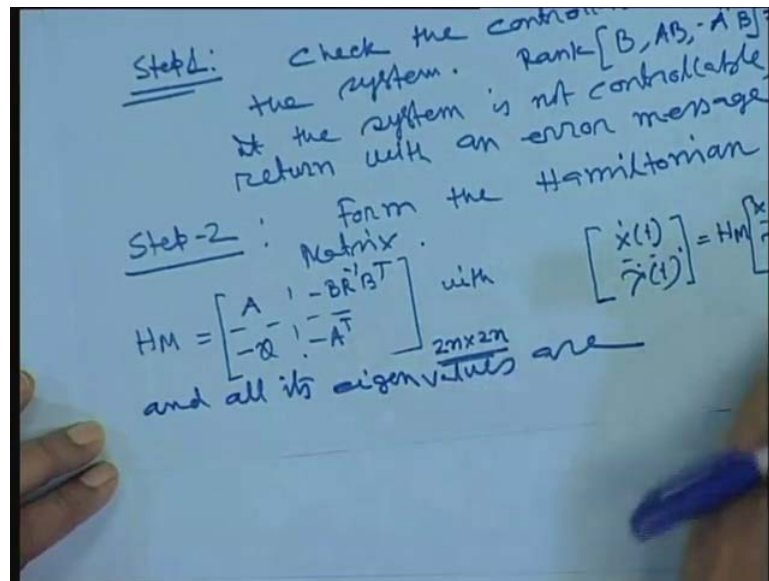 Step1: Check the
the system. Rank[B, AB, - A B]
If the system is not controllable,
return with an error message
Step-2: Form the Hamiltonian
Matrix.
HM = [A ¦ -BR⁻¹Bᵀ; -Q ¦ -Aᵀ] with [ẋ(t); λ̇(t)] = HM[x
2n×2n
and all its eigenvalues are